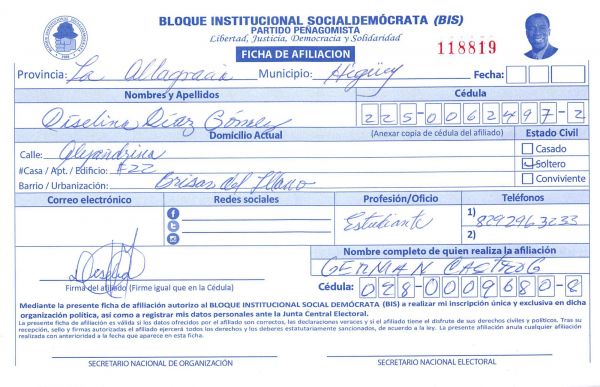 BLOQUE INSTITUCIONAL SOCIALDEMÓCRATA (BIS)
PARTIDO PEÑAGOMISTA
Libertad, Justicia, Democracia y Solidaridad
FICHA DE AFILIACION
118819
Provincia: La Altagracia Municipio: Higüey Fecha:
Nombres y Apellidos Cédula
Diselina Díaz Gómez 225-0062497-2
Domicilio Actual (Anexar copia de cédula del afiliado) Estado Civil
Calle: Alejandrina Casado
#Casa / Apt. / Edificio: #22 Soltero
Barrio / Urbanización: Brisas del Llano Conviviente
Correo electrónico Redes sociales Profesión/Oficio Teléfonos
Estudiante 1) 8292963233
2)
Nombre completo de quien realiza la afiliación
GERMAN CASTRO G
Firma del afiliado (Firme igual que en la Cédula) Cédula: 028-0009680-8
Mediante la presente ficha de afiliación autorizo al BLOQUE INSTITUCIONAL SOCIAL DEMÓCRATA (BIS) a realizar mi inscripción única y exclusiva en dicha
organización política, así como a registrar mis datos personales ante la Junta Central Electoral.
La presente ficha de afiliación es válida si los datos ofrecidos por el afiliado son correctos, las declaraciones veraces y si el afiliado tiene el disfrute de sus derechos civiles y políticos. Tras su
recepción, sello y firmas autorizadas el afiliado ejercerá todos los derechos y los deberes estatutariamente sancionados, de acuerdo a la ley. La presente afiliación anula cualquier afiliación
realizada con anterioridad a la fecha que aparece en esta ficha.
SECRETARIO NACIONAL DE ORGANIZACIÓN SECRETARIO NACIONAL ELECTORAL